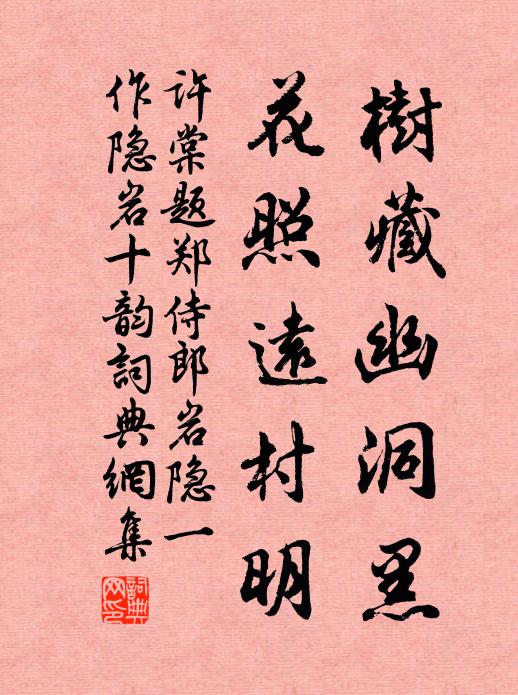 樹藏幽洞黑
花照遠村明
许棠题郑侍郎岩隐一
作隐岩十韵詞典網集
詞典网印